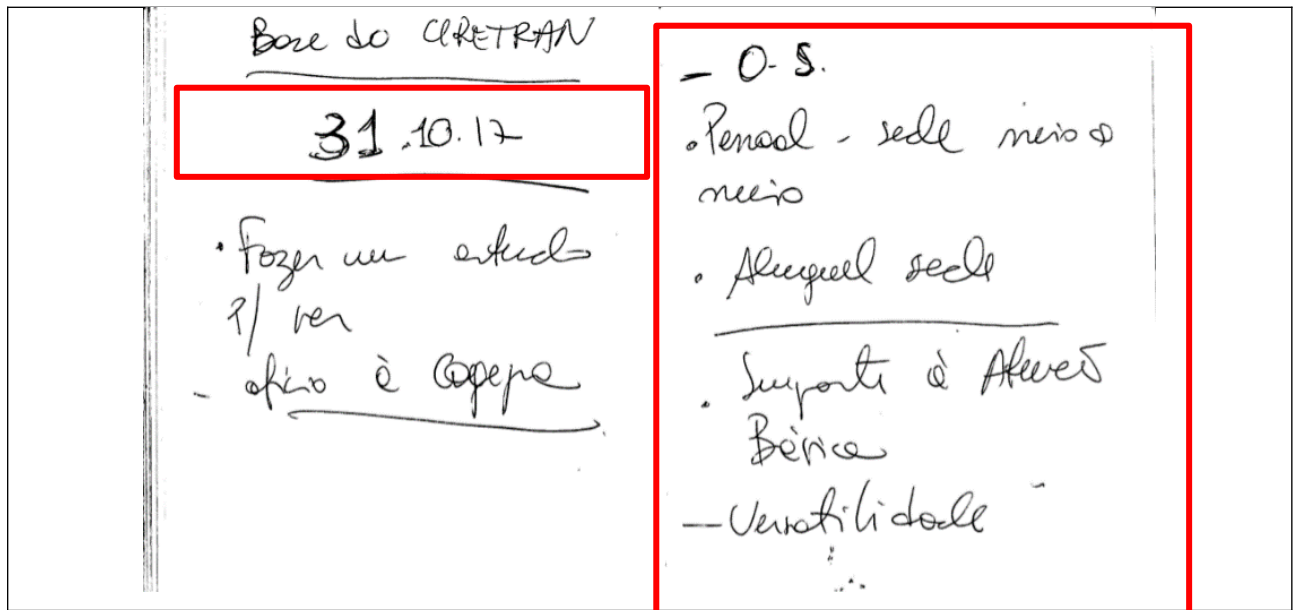 Base do CIRETRAN
31.10.17
· Fazer um estudo
p/ ver
- ofício à Cagepa
- O.S.
· Pessoal - sede meio a
meio
· Aluguel sede
· Suporte à Atenção
Básica
- Versatilidade